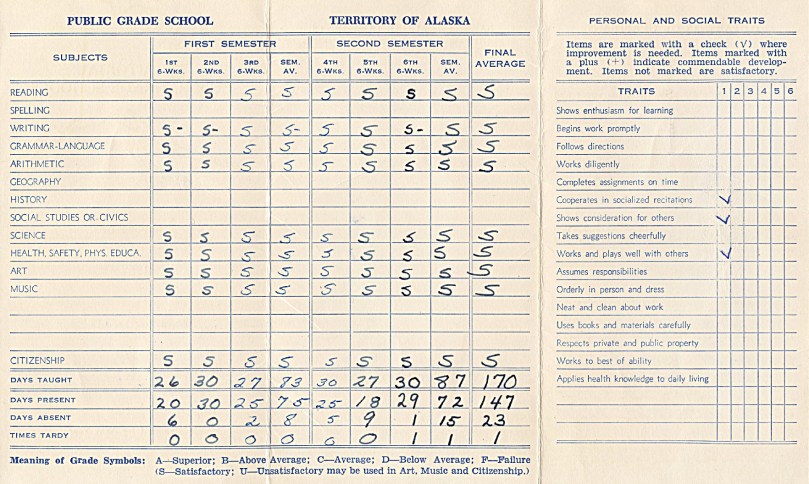 PUBLIC GRADE SCHOOL TERRITORY OF ALASKA
SUBJECTS FIRST SEMESTER SECOND SEMESTER FINAL AVERAGE
1ST 6-WKS. 2ND 6-WKS. 3RD 6-WKS. SEM. AV. 4TH 6-WKS. 5TH 6-WKS. 6TH 6-WKS. SEM. AV.
READING S S S S S S S S S
SPELLING
WRITING S- S- S S- S S S- S S
GRAMMAR-LANGUAGE S S S S S S S S S
ARITHMETIC S S S S S S S S S
GEOGRAPHY
HISTORY
SOCIAL STUDIES OR CIVICS
SCIENCE S S S S S S S S S
HEALTH, SAFETY, PHYS. EDUCA. S S S S S S S S S
ART S S S S S S S S S
MUSIC S S S S S S S S S
CITIZENSHIP S S S S S S S S S
DAYS TAUGHT 26 30 27 83 30 27 30 87 170
DAYS PRESENT 20 30 25 75 25 18 29 72 147
DAYS ABSENT 6 0 2 8 5 9 1 15 23
TIMES TARDY 0 0 0 0 0 0 1 1 1
Meaning of Grade Symbols: A—Superior; B—Above Average; C—Average; D—Below Average; F—Failure
(S—Satisfactory; U—Unsatisfactory may be used in Art, Music and Citizenship.)
PERSONAL AND SOCIAL TRAITS
Items are marked with a check (√) where
improvement is needed. Items marked with
a plus (+) indicate commendable develop-
ment. Items not marked are satisfactory.
TRAITS 1 2 3 4 5 6
Shows enthusiasm for learning
Begins work promptly
Follows directions
Works diligently
Completes assignments on time
Cooperates in socialized recitations √
Shows consideration for others √
Takes suggestions cheerfully
Works and plays well with others √
Assumes responsibilities
Orderly in person and dress
Neat and clean about work
Uses books and materials carefully
Respects private and public property
Works to best of ability
Applies health knowledge to daily living